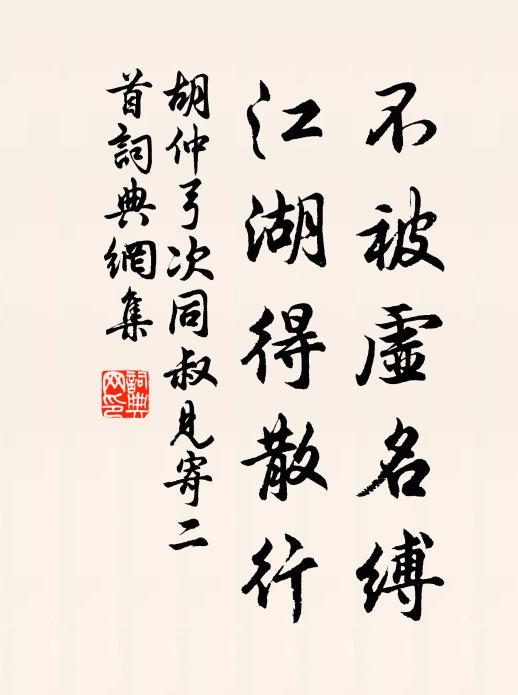 不被虛名縛
江湖得散行
胡仲弓次同叔見寄二
首詞典網集
詞典
网印